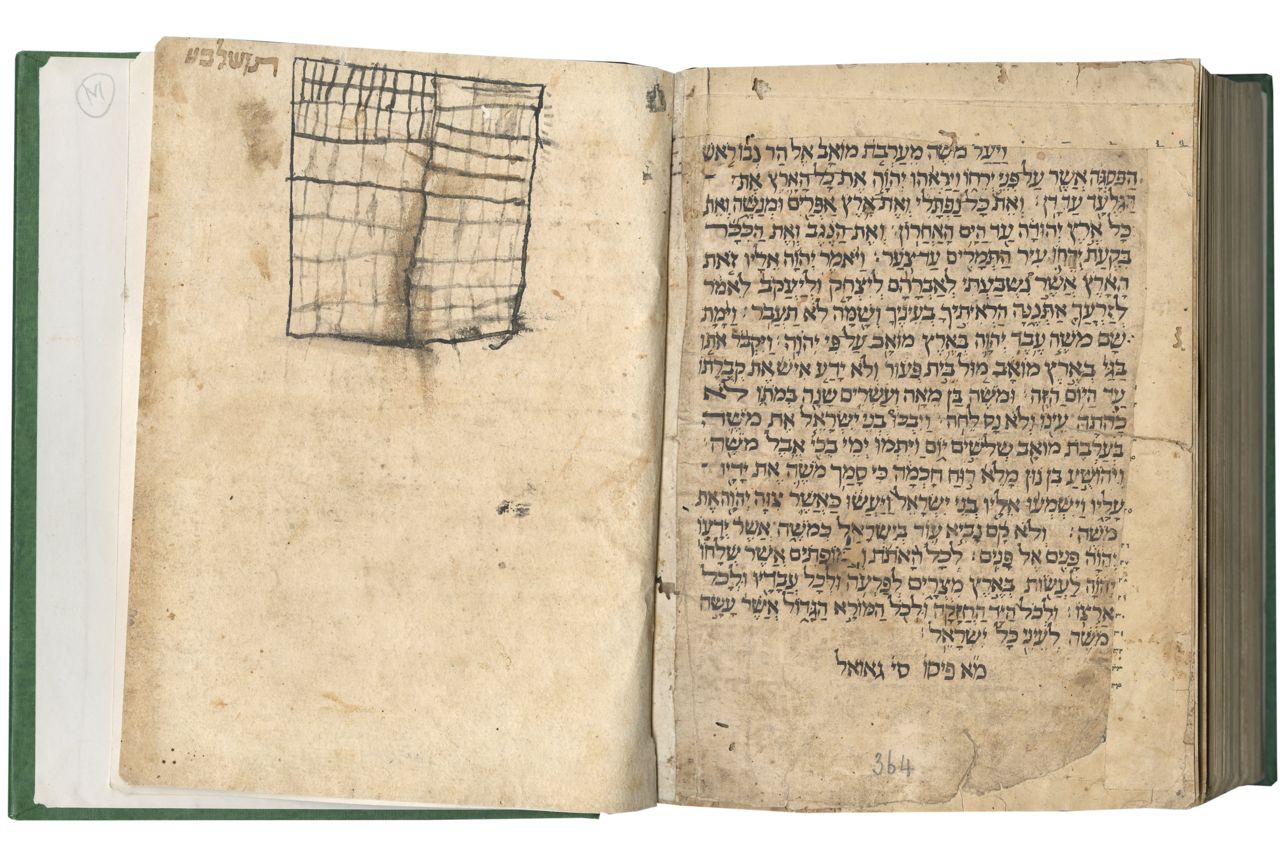 תושלבע
M
ויעל משה מערבת מואב אל הר נבו ראש
הפסגה אשר על פני ירחו ויראהו יהוה את כל הארץ את
הגלעד עד דן׃ ואת כל נפתלי ואת ארץ אפרים ומנשה ואת
כל ארץ יהודה עד הים האחרון׃ ואת הנגב ואת הככר
בקעת ירחו עיר התמרים עד צער׃ ויאמר יהוה אליו זאת
הארץ אשר נשבעתי לאברהם ליצחק וליעקב לאמר
לזרעך אתננה הראיתיך בעיניך ושמה לא תעבר׃ וימת
שם משה עבד יהוה בארץ מואב על פי יהוה׃ ויקבר אתו
בגי בארץ מואב מול בית פעור ולא ידע איש את קברתו
עד היום הזה׃ ומשה בן מאה ועשרים שנה במתו לא
כהתה עינו ולא נס לחה׃ ויבכו בני ישראל את משה
בערבת מואב שלשים יום ויתמו ימי בכי אבל משה׃
ויהושע בן נון מלא רוח חכמה כי סמך משה את ידיו
עליו וישמעו אליו בני ישראל ויעשו כאשר צוה יהוה את
משה׃ ולא קם נביא עוד בישראל כמשה אשר ידעו
יהוה פנים אל פנים׃ לכל האתות והמופתים אשר שלחו
יהוה לעשות בארץ מצרים לפרעה ולכל עבדיו ולכל
ארצו׃ ולכל היד החזקה ולכל המורא הגדול אשר עשה
משה לעיני כל ישראל׃
מא פיסו סי גאואל
364